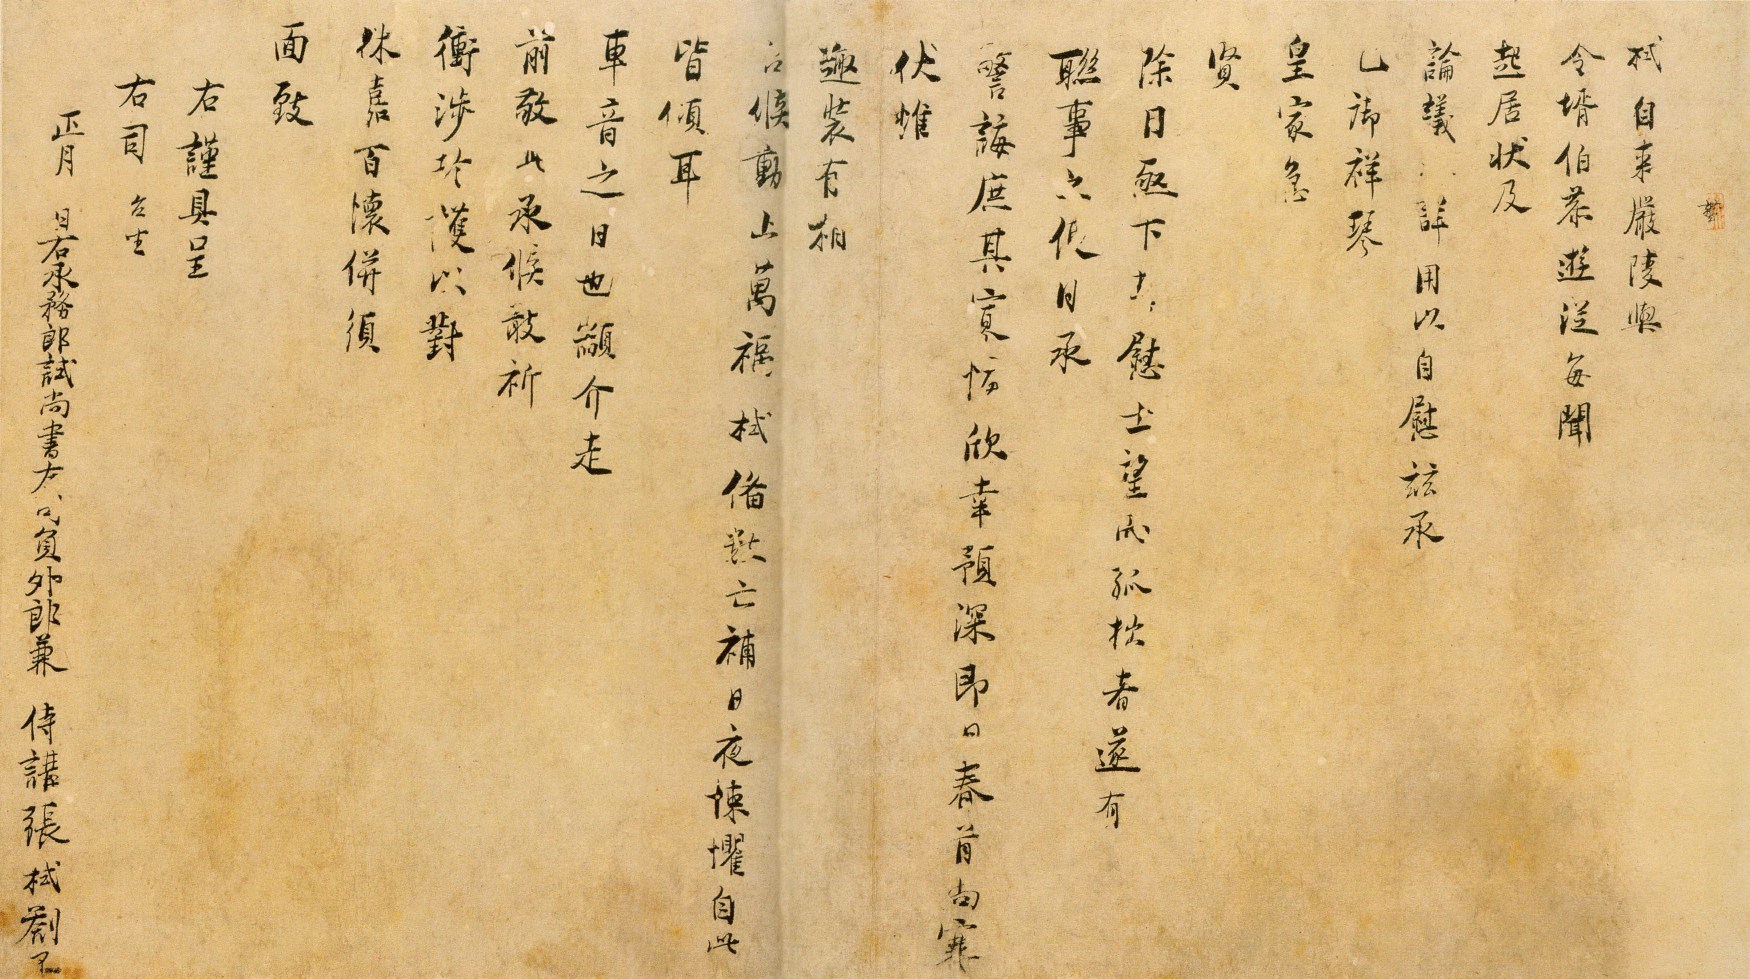 栻自來嚴陵與
令壻伯恭遊從每聞
起居狀及
論議之詳用以自慰茲承
已御祥琴
皇家急
賢
除日亟下大慰士望而孤拙者遂有
聯事之便日承
警誨庶其寡悔欣幸預深即日春首尚寒
伏惟
趣裝有相
台候動止萬福栻備數亡補日夜悚懼自此
皆傾耳
車音之日也顓介走
前敬此承候敢祈
衝涉珍護以對
休嘉百懷併須
面致
右謹具呈
右司 台坐
正月 日右承務郎試尚書左司員外郎兼 侍講張栻劄子